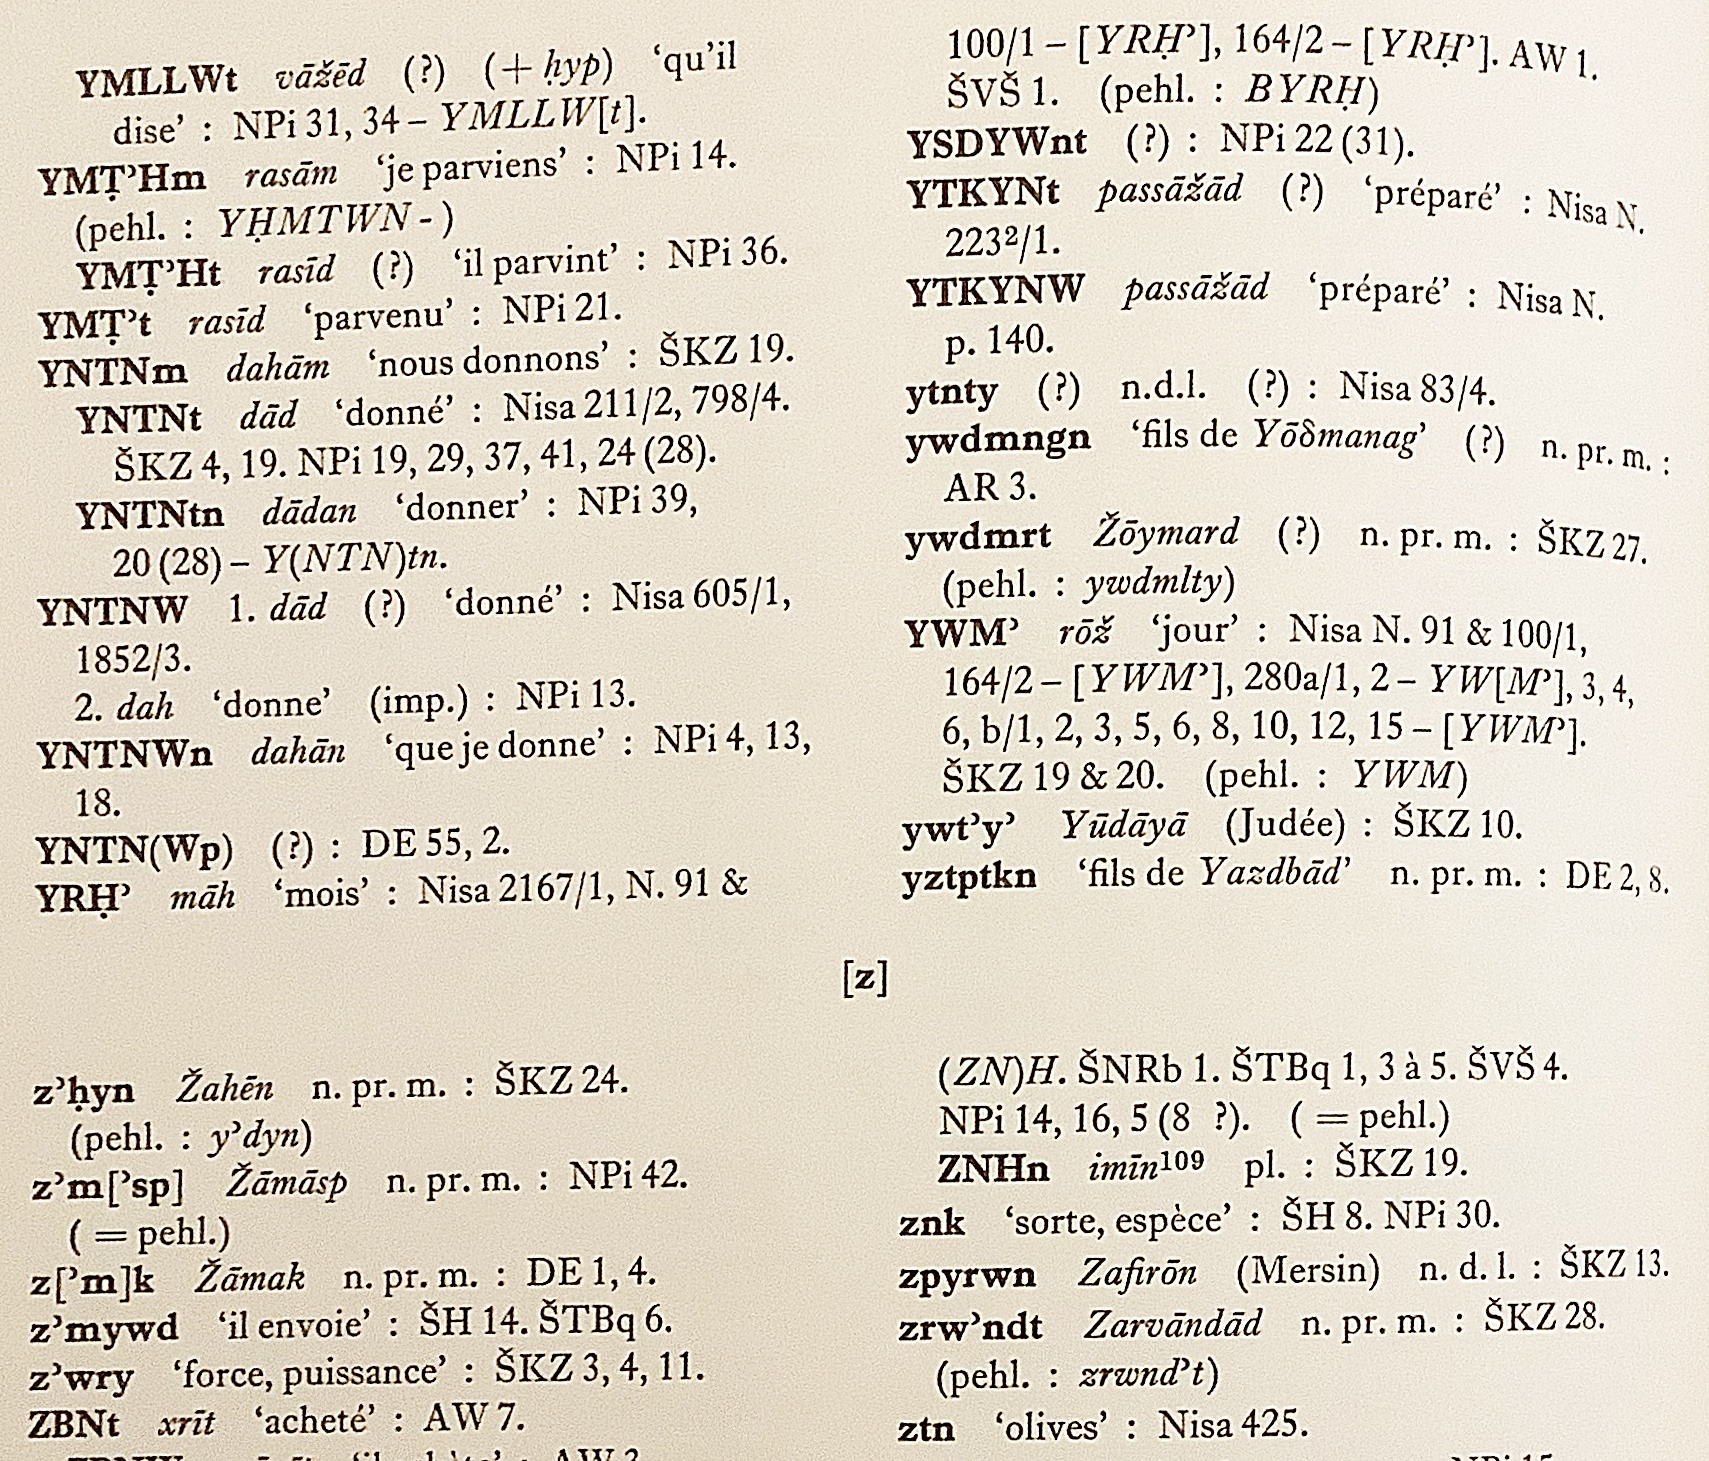 YMLLWt vāžēd (?) (+ ḥyp) ‘qu’il
dise’ : NPi 31, 34 – YMLLW[t].
YMṬʾHm rasām ‘je parviens’ : NPi 14.
(pehl. : YḤMTWN - )
YMṬʾHt rasīd (?) ‘il parvint’ : NPi 36.
YMṬʾt rasīd ‘parvenu’ : NPi 21.
YNTNm dahām ‘nous donnons’ : ŠKZ 19.
YNTNt dād ‘donné’ : Nisa 211/2, 798/4.
ŠKZ 4, 19. NPi 19, 29, 37, 41, 24 (28).
YNTNtn dādan ‘donner’ : NPi 39,
20 (28) – Y(NTN)tn.
YNTNW 1. dād (?) ‘donné’ : Nisa 605/1,
1852/3.
2. dah ‘donne’ (imp.) : NPi 13.
YNTNWn dahān ‘que je donne’ : NPi 4, 13,
18.
YNTN(Wp) (?) : DE 55, 2.
YRḤʾ māh ‘mois’ : Nisa 2167/1, N. 91 &
100/1 – [YRḤʾ], 164/2 – [YRḤʾ]. AW 1.
ŠVŠ 1. (pehl. : BYRḤ)
YSDYWnt (?) : NPi 22 (31).
YTKYNt passāžād (?) ‘préparé’ : Nisa N.
223²/1.
YTKYNW passāžād ‘préparé’ : Nisa N.
p. 140.
ytnty (?) n.d.l. (?) : Nisa 83/4.
ywdmngn ‘fils de Yōδmanag’ (?) n. pr. m. :
AR 3.
ywdmrt Žōymard (?) n. pr. m. : ŠKZ 27.
(pehl. : ywdmlty)
YWMʾ rōž ‘jour’ : Nisa N. 91 & 100/1,
164/2 – [YWMʾ], 280a/1, 2 – YW[Mʾ], 3, 4,
6, b/1, 2, 3, 5, 6, 8, 10, 12, 15 – [YWMʾ].
ŠKZ 19 & 20. (pehl. : YWM)
ywtʾyʾ Yūdāyā (Judée) : ŠKZ 10.
yztptkn ‘fils de Yazdbād’ n. pr. m. : DE 2, 8.
[z]
zʾḥyn Žahēn n. pr. m. : ŠKZ 24.
(pehl. : yʾdyn)
zʾm[ʾsp] Žāmāsp n. pr. m. : NPi 42.
( = pehl.)
z[ʾm]k Žāmak n. pr. m. : DE 1, 4.
zʾmywd ‘il envoie’ : ŠH 14. ŠTBq 6.
zʾwry ‘force, puissance’ : ŠKZ 3, 4, 11.
ZBNt xrīt ‘acheté’ : AW 7.
(ZN)H. ŠNRb 1. ŠTBq 1, 3 à 5. ŠVŠ 4.
NPi 14, 16, 5 (8 ?). ( = pehl.)
ZNHn imīn¹⁰⁹ pl. : ŠKZ 19.
znk ‘sorte, espèce’ : ŠH 8. NPi 30.
zpyrwn Zafirōn (Mersin) n. d. l. : ŠKZ 13.
zrwʾndt Zarvāndād n. pr. m. : ŠKZ 28.
(pehl. : zrwndʾt)
ztn ‘olives’ : Nisa 425.